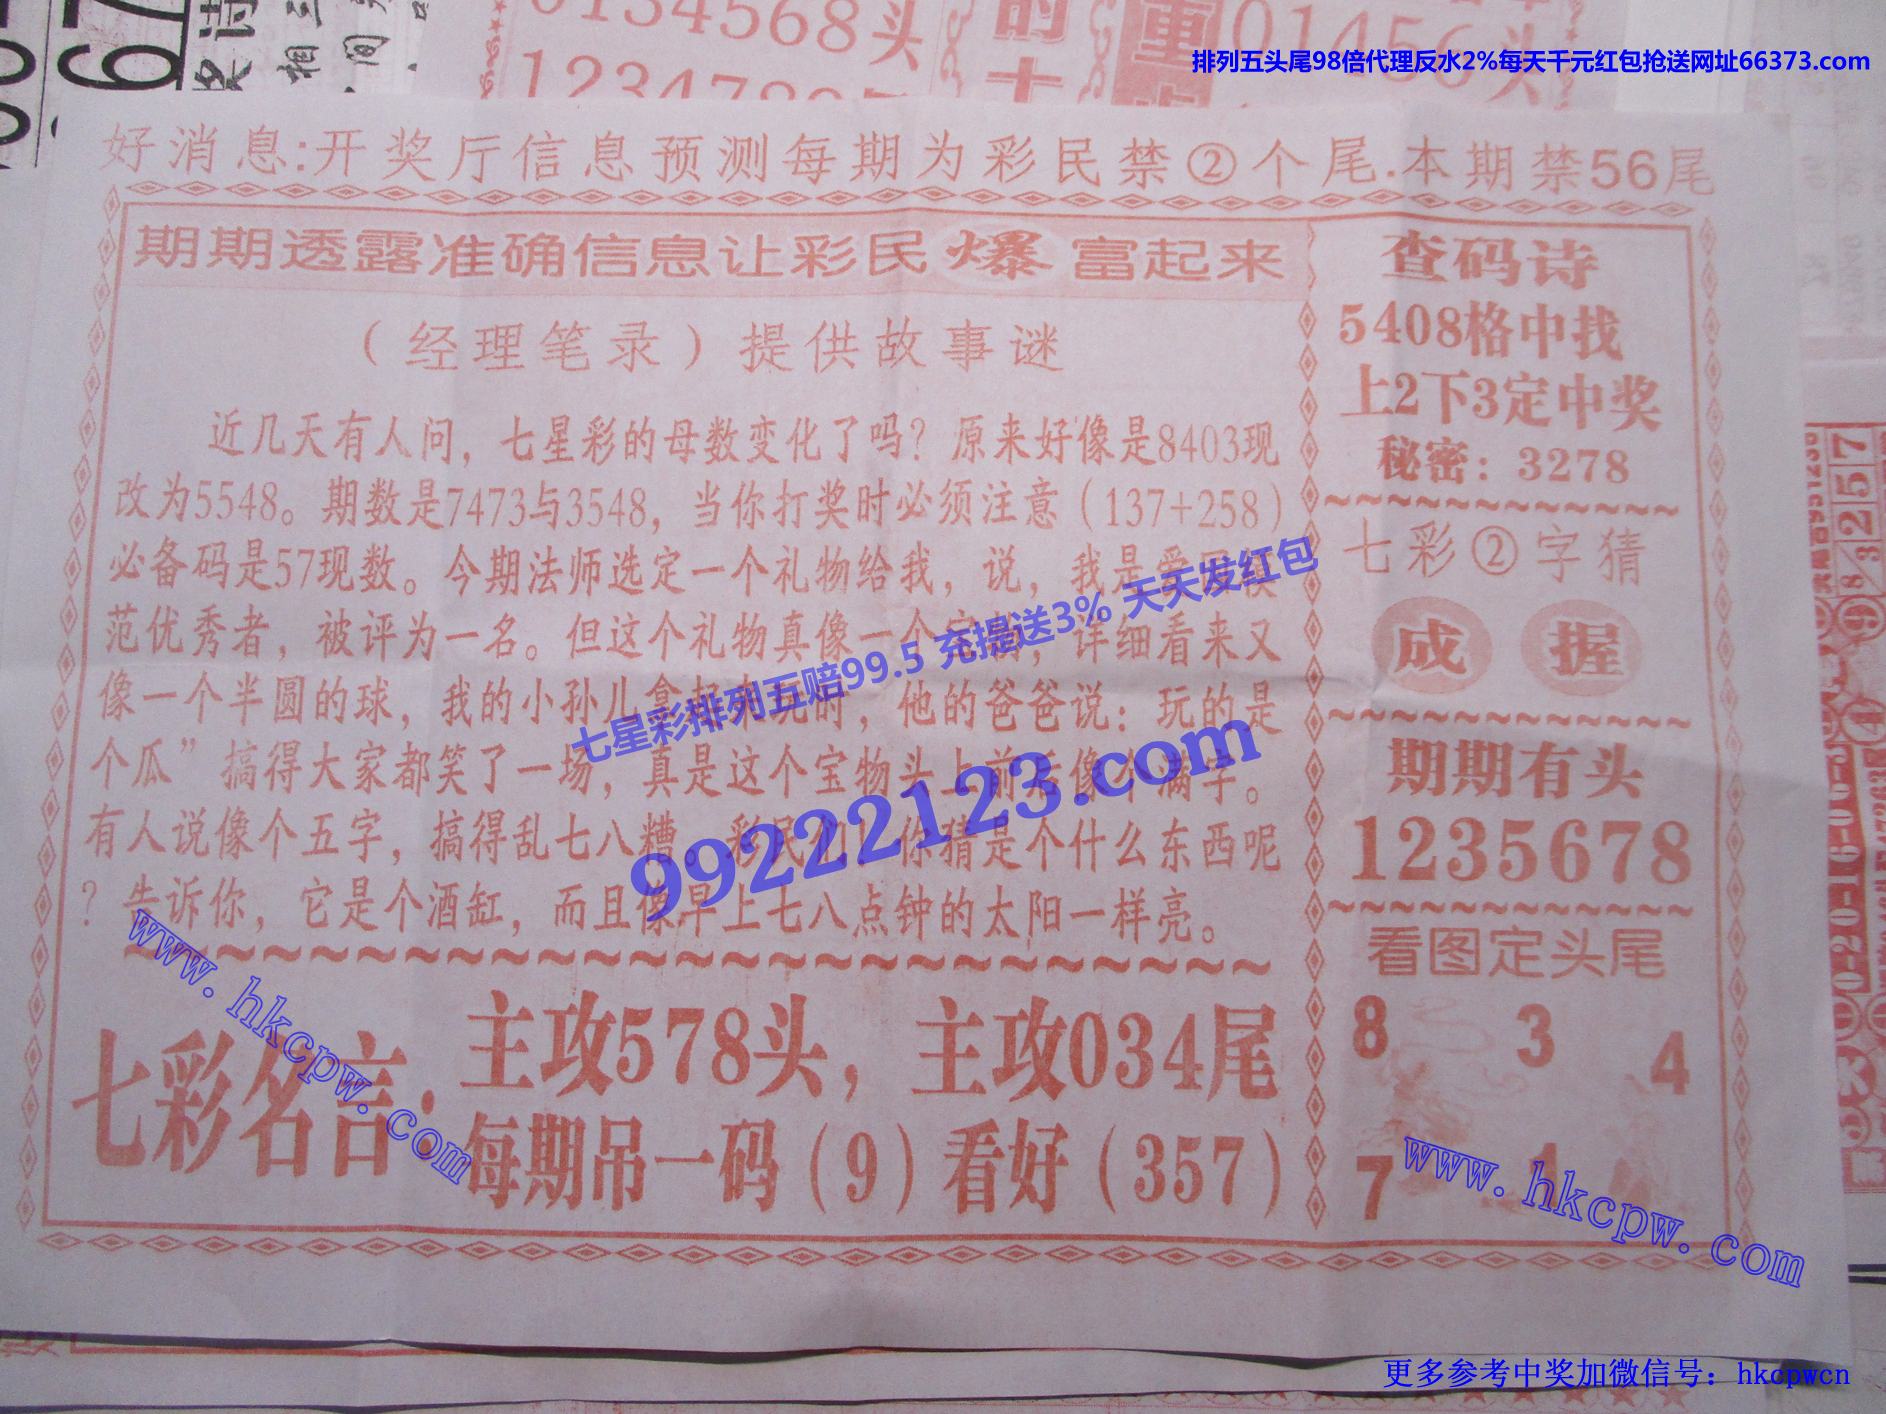 0134568头
123478
的
重
01456头
奖诗
相三
间
67
排列五头尾98倍代理反水2%每天千元红包抢送网址66373.com
好消息:开奖厅信息预测每期为彩民禁②个尾.本期禁56尾
期期透露准确信息让彩民爆富起来
（经理笔录）提供故事谜
近几天有人问，七星彩的母数变化了吗？原来好像是8403现
改为5548。期数是7473与3548，当你打奖时必须注意（137+258）
必备码是57现数。今期法师选定一个礼物给我，说，我是爱
范优秀者，被评为一名。但这个礼物真像一个，详细看来又
像一个半圆的球，我的小孙儿拿起来玩时，他的爸爸说：玩的是
个瓜”搞得大家都笑了一场，真是这个宝物头上前后像个满字。
有人说像个五字，搞得乱七八糟。彩民们！你猜是个什么东西呢
？告诉你，它是个酒缸，而且像早上七八点钟的太阳一样亮。
七彩名言:
主攻578头，主攻034尾
每期吊一码（9）看好（357）
查码诗
5408格中找
上2下3定中奖
秘密：3278
七彩②字猜
成 握
期期有头
1235678
看图定头尾
8 3 4
7 1
七星彩排列五赔99.5 充提送3% 天天发红包
99222123.com
www.hkcpw.com
www.hkcpw.com
更多参考中奖加微信号：hkcpwcn